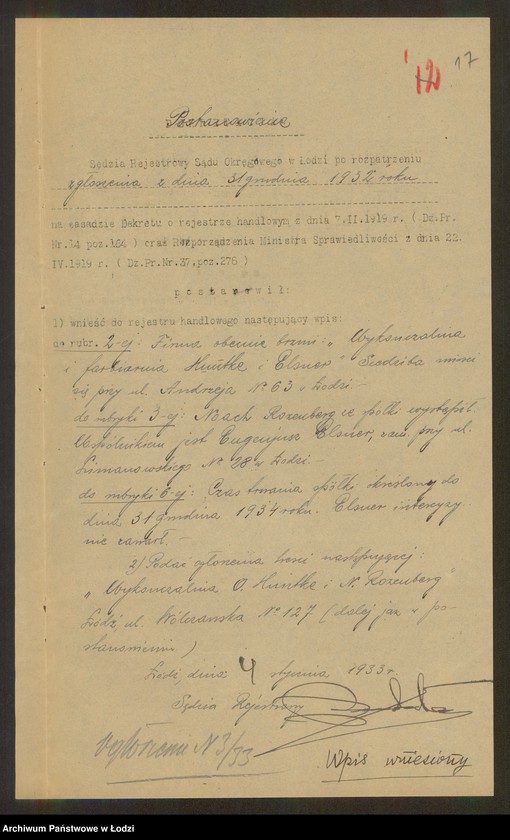 17
12
Postanowienie
Sędzia Rejestrowy Sądu Okręgowego w Łodzi po rozpatrzeniu
zgłoszenia z dnia 31 grudnia 1932 roku
na zasadzie Dekretu o rejestrze handlowym z dnia 7.II.1919 r. ( Dz.Pr.
Nr.14 poz.164 ) oraz Rozporządzenia Ministra Sprawiedliwości z dnia 22.
IV.1919 r. ( Dz.Pr.Nr.37.poz.276 )
postanowił:
1) wnieść do rejestru handlowego następujący wpis:
do rubr. 2-ej: Firma obecnie brzmi: „Wykończalnia
i farbiarnia Huńtke i Elsner" Siedziba mieści
się przy ul. Andrzeja № 63 w Łodzi.—
do rubryki 3-ej: Nach Rozenberg ze spółki wystąpił.
Wspólnikiem jest Eugenjusz Elsner, zam. przy ul.
Limanowskiego № 28 w Łodzi.—
do rubryki 6-ej: Czas trwania spółki określony do
dnia 31 grudnia 1934 roku. Elsner intercyzy
nie zawarł.—
2) Podać ogłoszenia treści następującej:
„Wykończalnia O. Huńtke i N. Rozenberg"
Łódź, ul. Wólczańska № 127 (dalej jak w po-
stanowieniu)
Łódź, dnia 4 stycznia 1933 r.
Sędzia Rejestrowy
Ogłoszenie N 3/33
Wpis wniesiony
Archiwum Państwowe w Łodzi